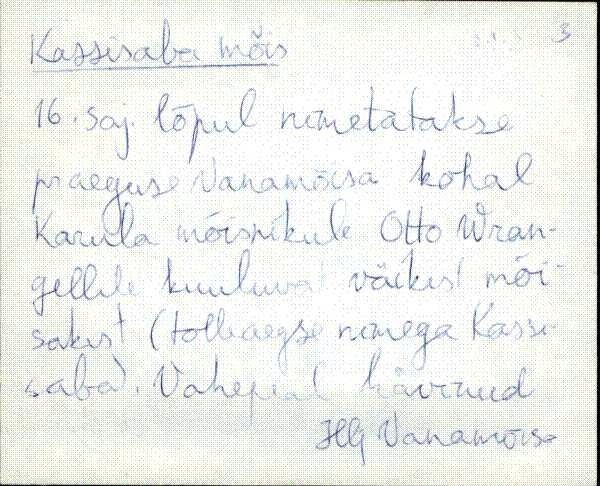 3
Kassisaba mõis
16. saj. lõpul nimetatakse
praeguse Vanamõisa kohal
Karula mõisnikule Otto Wran-
gellile kuuluvat väikest mõi-
sakest (tolleaegse nimega Kassi-
saba). Vahepeal hävinud
Vanamõisa